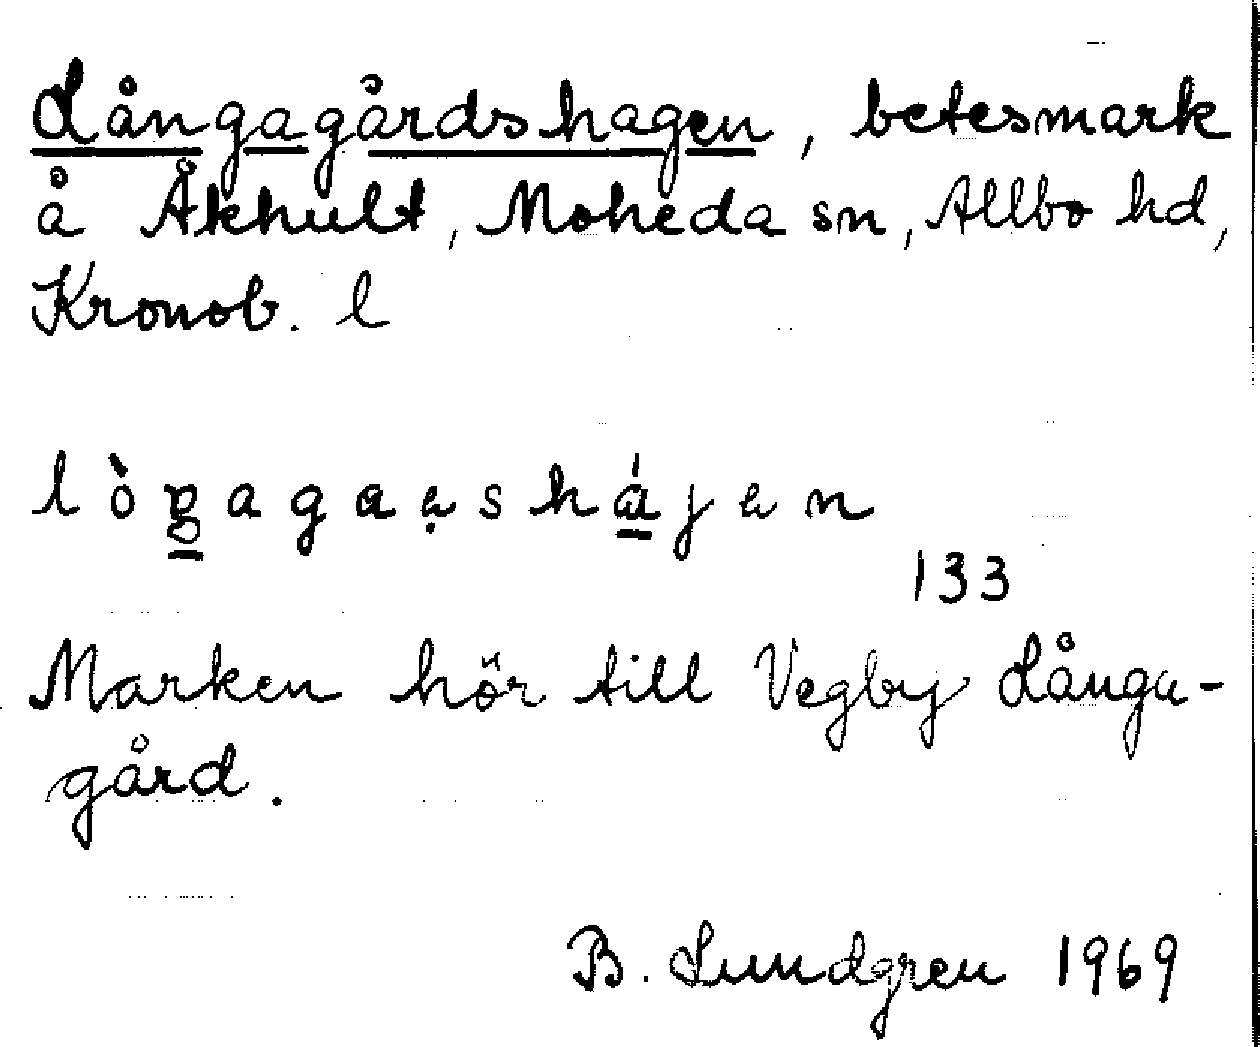 Långagårdshagen, betesmark
å Åkhult, Moheda sn, Allbo hd,
Kronob. l
133
Marken hör till Vegby Långa-
gård.
B. Lundgren 1969